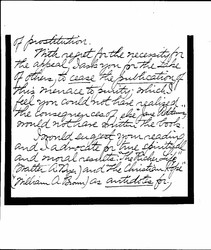 of prostitution.
With regret for the necessity for
the appeal, I ask you for the sake
of others, to cease the publication of
this menace to purity; which I
feel you could not have realized
the consequences of, else
would not have written the book.
I would suggest your reading
and I advocate for true spiritual
and moral results: "The Higher Life"
Walter A.
and the Christian
(William A. Brown) as antidotes for